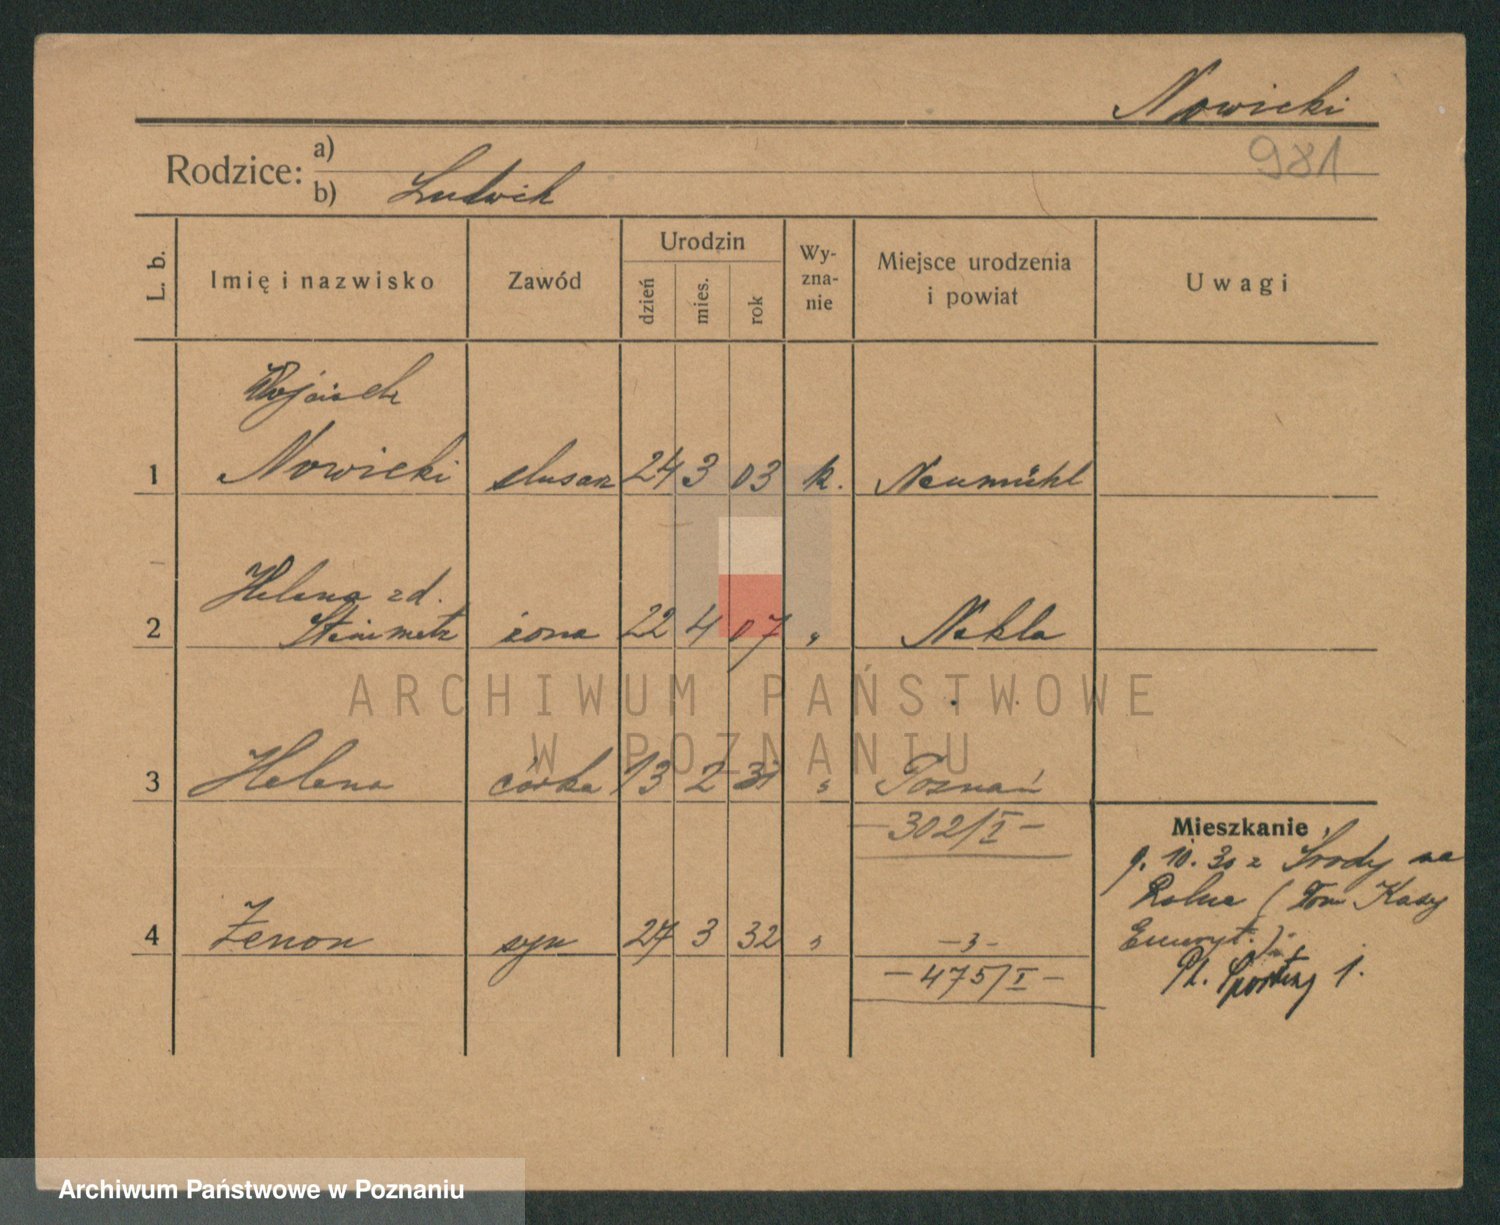 Nowicki
981
Rodzice: a)
b) Ludwik
L. b. Imię i nazwisko Zawód Urodzin dzień mies. rok Wy-zna-nie Miejsce urodzenia i powiat Uwagi
Wojciech
1 Nowicki ślusarz 24 3 03 k. Neumühl
Helena zd.
2 Steinmetz żona 22 4 07 " Nakla
ARCHIWUM PAŃSTWOWE
W POZNANIU
3 Helena córka 13 2 31 " Poznań
— 302/I —
Mieszkanie
9. 10. 30 z Środy na
Rolna ( Dom Kasy
Emeryt. ).
4 Zenon syn 27 3 32 " — " —
— 475/I —
Pl. Sporting 1.
Archiwum Państwowe w Poznaniu